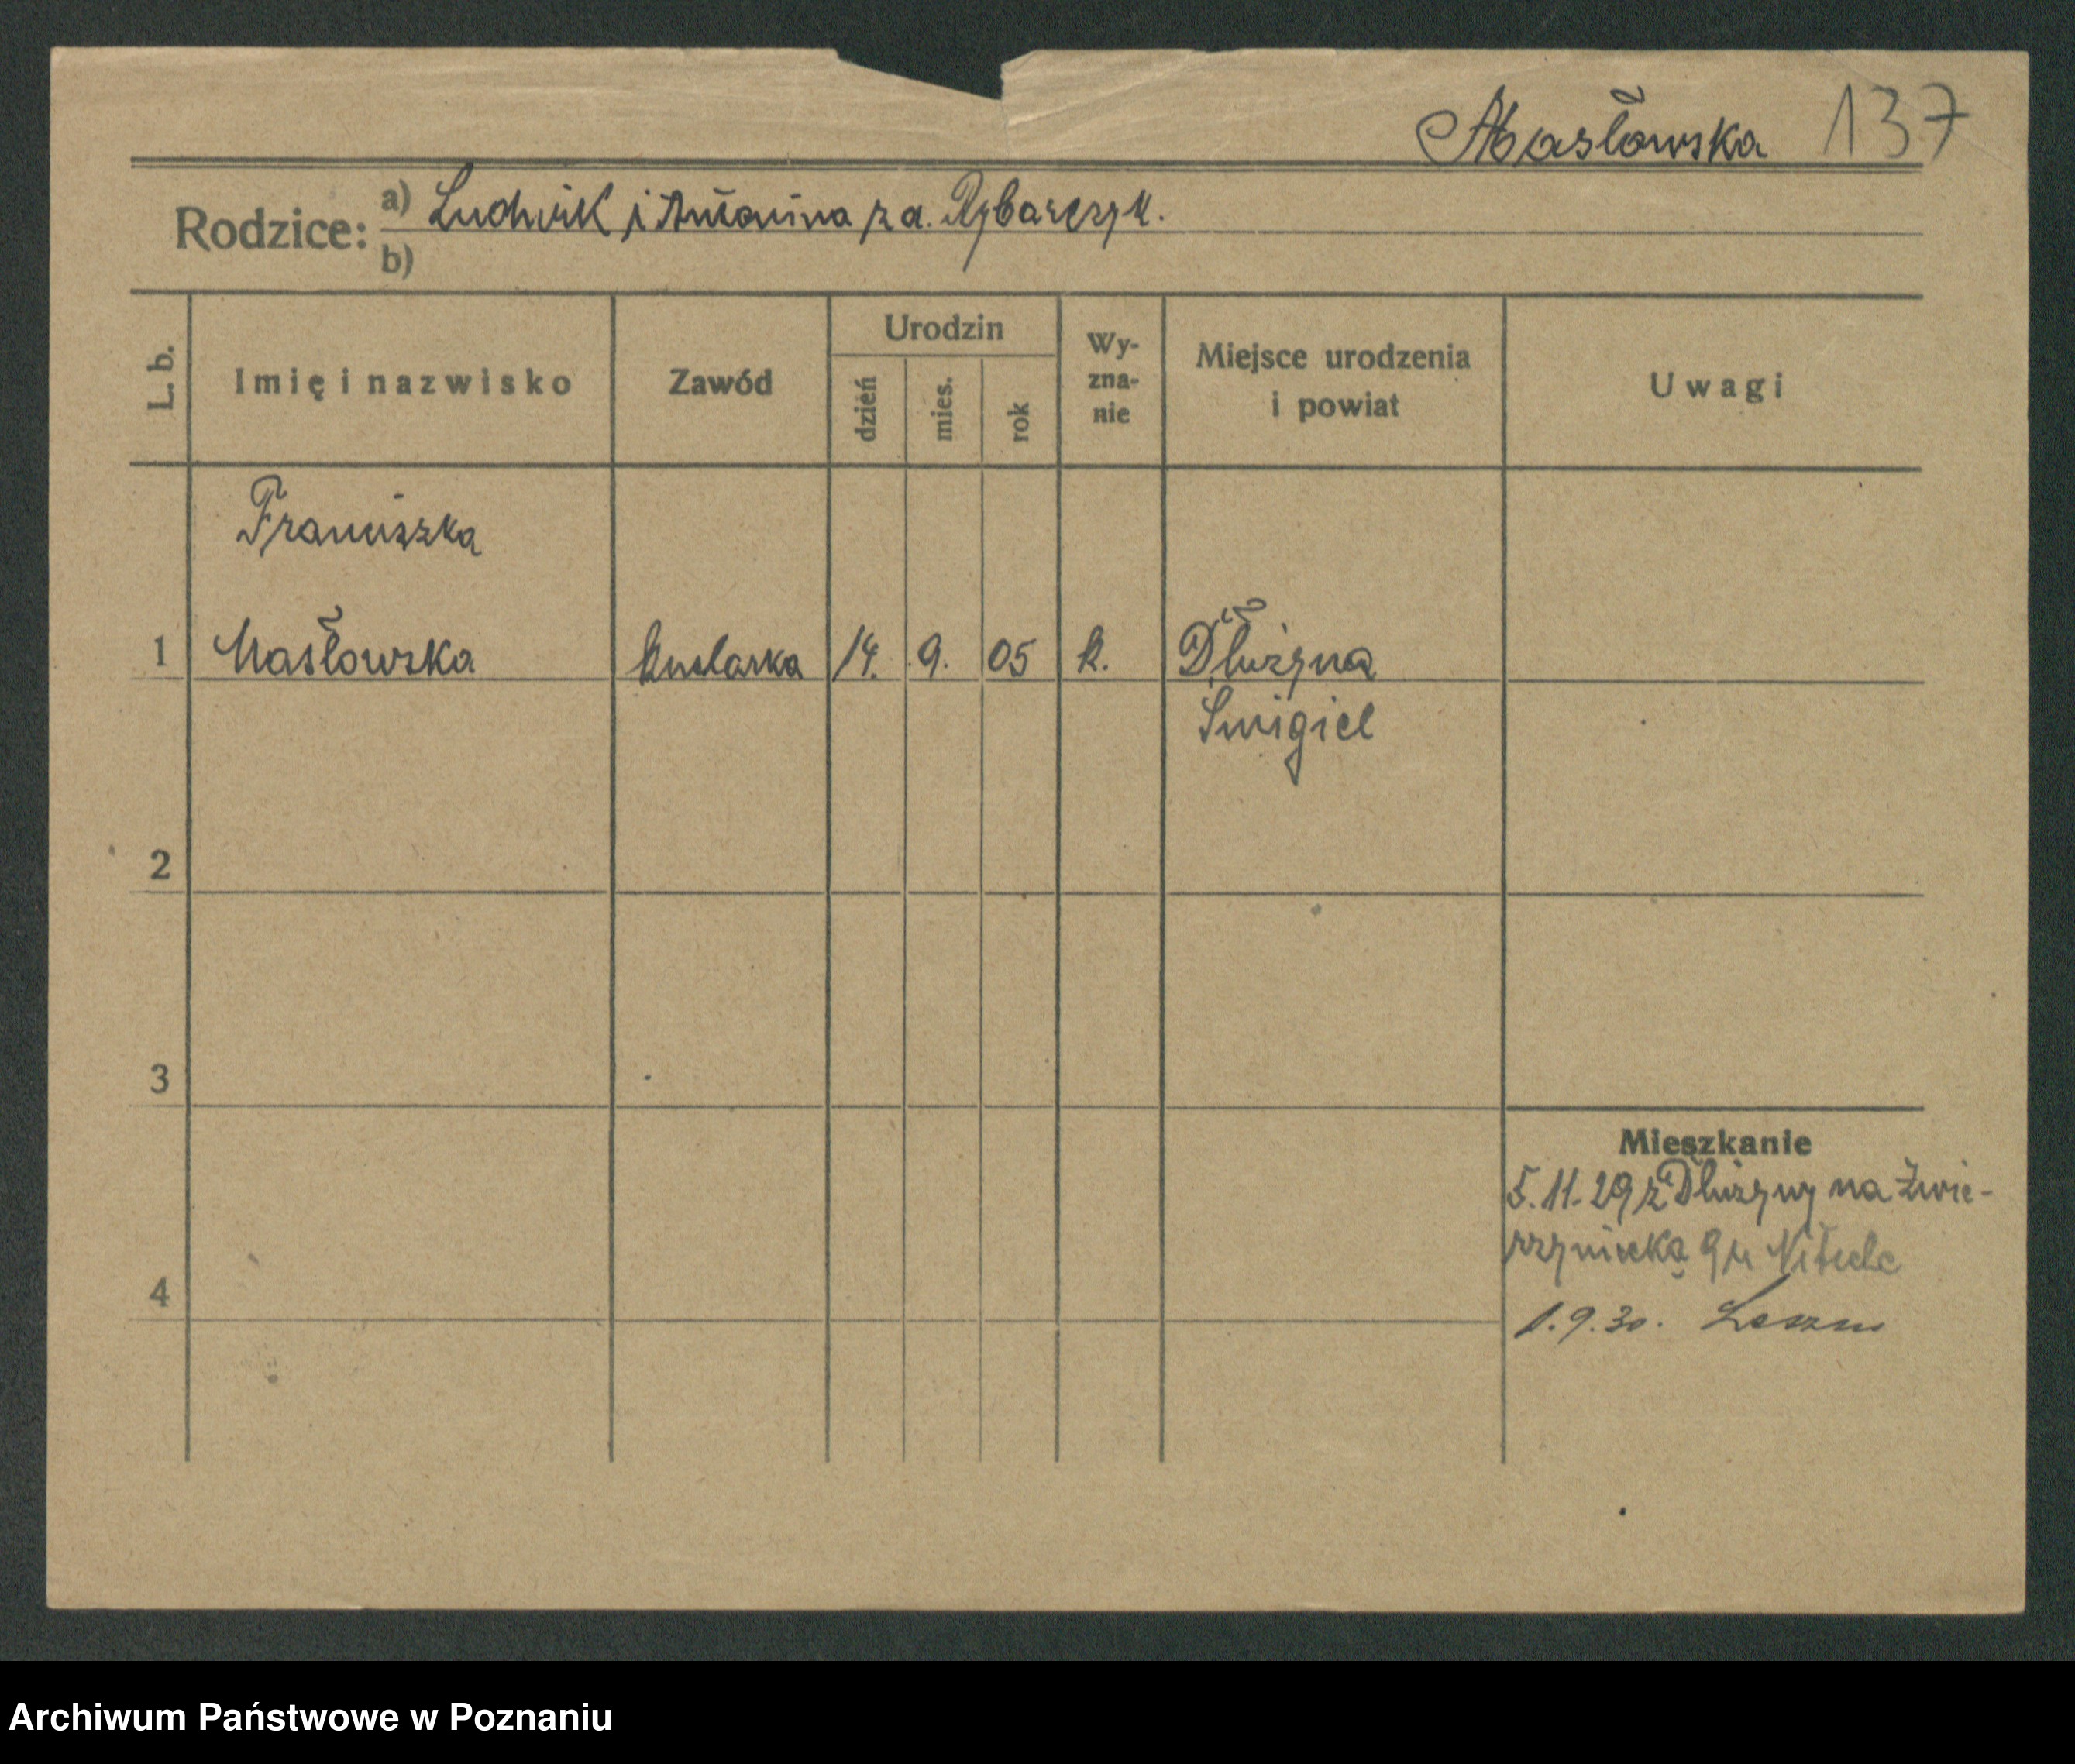 Masłowska 137
Rodzice: a) Ludwik i Antonina z d. Rybarczyk.
b)
L. b.
Imię i nazwisko
Zawód
Urodzin
dzień
mies.
rok
Wy-
zna-
nie
Miejsce urodzenia
i powiat
Uwagi
Franciszka
1 Masłowska 14. 9. 05 k. Dłużyna
Smigiel
2
3
4
Mieszkanie
5.11.29 z Dłużyny na Zwie-
rzyniecką 9
1.9.30. Leszno
Archiwum Państwowe w Poznaniu